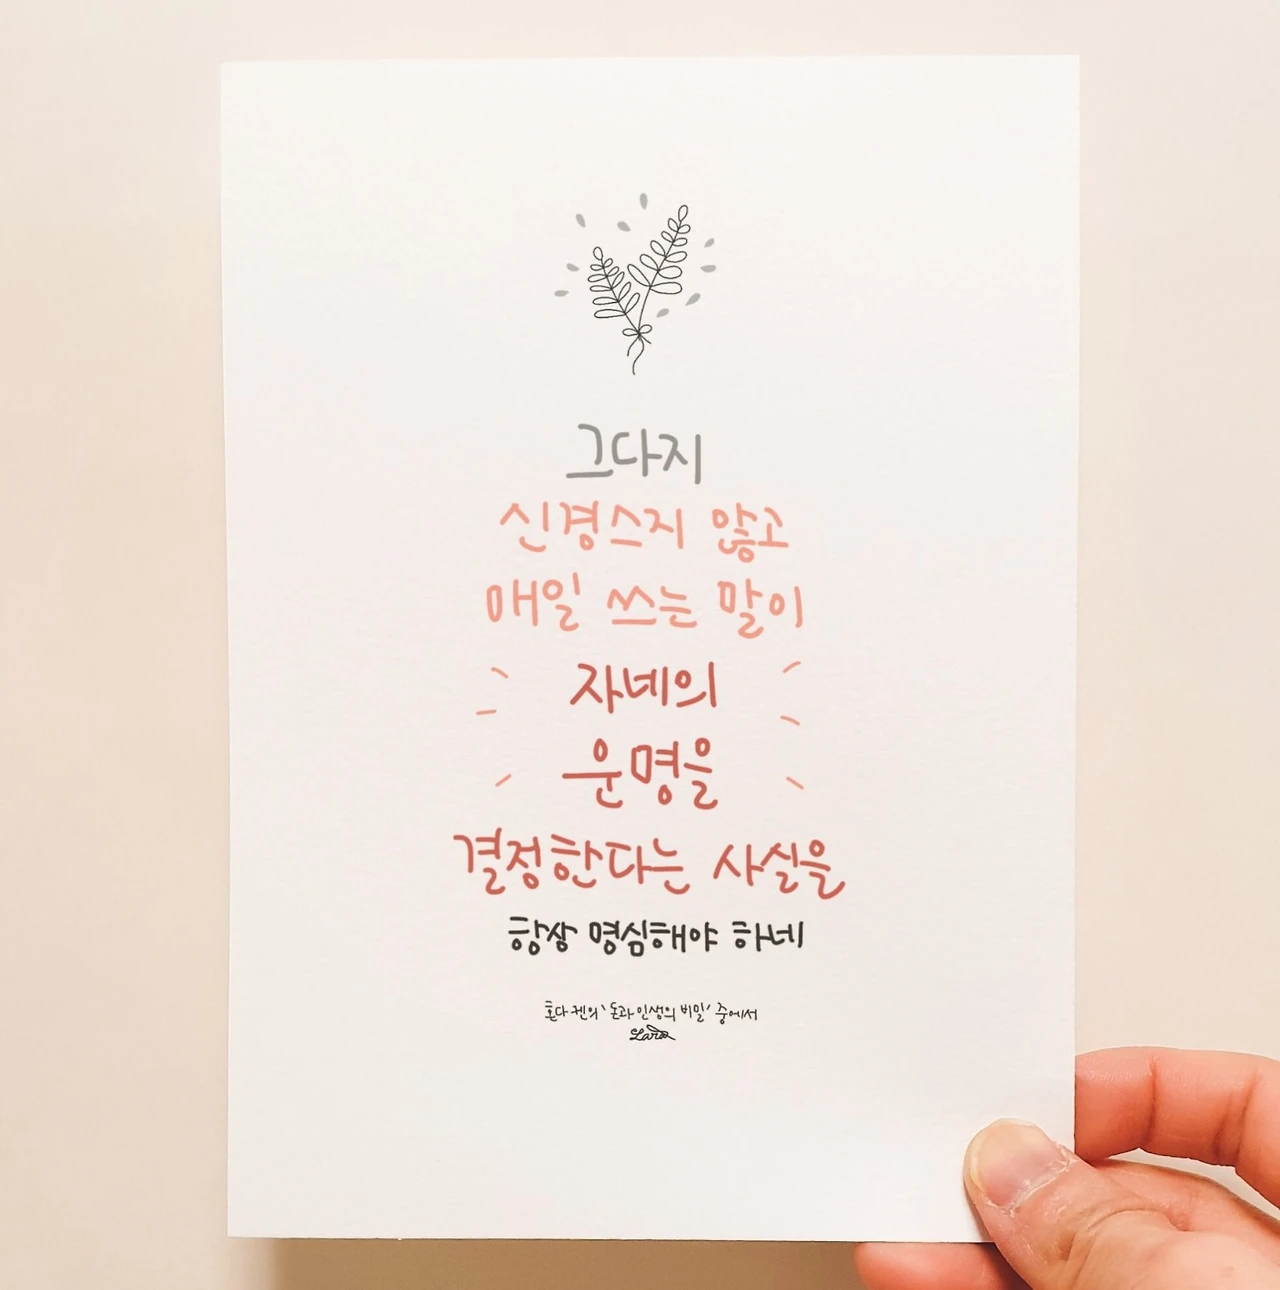 그다지
신경스지 않고
매일 쓰는 말이
자네의
운명을
결정한다는 사실을
항상 명심해야 하네
혼다 켄의 '돈과 인생의 비밀' 중에서
Lara